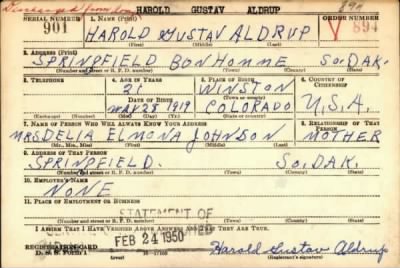 Discharged from draft
HAROLD GUSTAV ALDRUP
89A
SERIAL NUMBER 1. NAME (Print) ORDER NUMBER
901 HAROLD GUSTAV ALDRUP V 894
(First) (Middle) (Last)
2. ADDRESS (Print)
SPRINGFIELD BON HOMME SO. DAK.
(Number and street or R. F. D. number) (Town) (County) (State)
3. TELEPHONE 4. AGE IN YEARS 5. PLACE OF BIRTH 6. COUNTRY OF CITIZENSHIP
21 WINSTON
DATE OF BIRTH
MAR 28 1919 COLORADO U.S.A.
(Exchange) (Number) (Mo.) (Day) (Yr.) (State or country)
7. NAME OF PERSON WHO WILL ALWAYS KNOW YOUR ADDRESS 8. RELATIONSHIP OF THAT PERSON
MRS DELIA ELMONA JOHNSON MOTHER
(Mr., Mrs., Miss) (First) (Middle) (Last)
9. ADDRESS OF THAT PERSON
SPRINGFIELD. SO. DAK.
(Number and street or R. F. D. number) (Town) (County) (State)
10. EMPLOYER'S NAME
NONE
11. PLACE OF EMPLOYMENT OR BUSINESS
STATEMENT OF
(Number and street or R. F. D. number) (Town) (County) (State)
I AFFIRM THAT I HAVE VERIFIED ABOVE ANSWERS AND THAT THEY ARE TRUE.
REGISTRATION CARD FEB 24 1950 Harold Gustav Aldrup
D. S. S. Form 1 (over) (Registrant's signature)